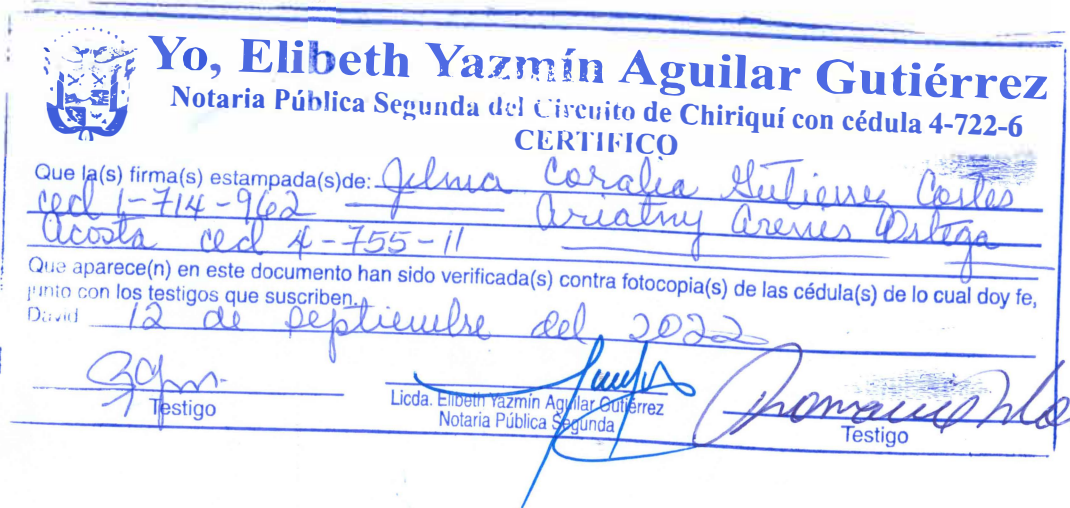 Yo, Elibeth Yazmín Aguilar Gutiérrez
Notaria Pública Segunda del Circuito de Chiriquí con cédula 4-722-6
CERTIFICO
Que la(s) firma(s) estampada(s)de: Jelma Coralia Gutierrez Cortes
ced 1-714-962 Ariatny Arenis Ortega
Acosta ced 4-755-11
Que aparece(n) en este documento han sido verificada(s) contra fotocopia(s) de las cédula(s) de lo cual doy fe,
junto con los testigos que suscriben.
David 12 de septiembre del 2022
Testigo
Licda. Elibeth Yazmín Aguilar Gutiérrez
Notaria Pública Segunda
Testigo